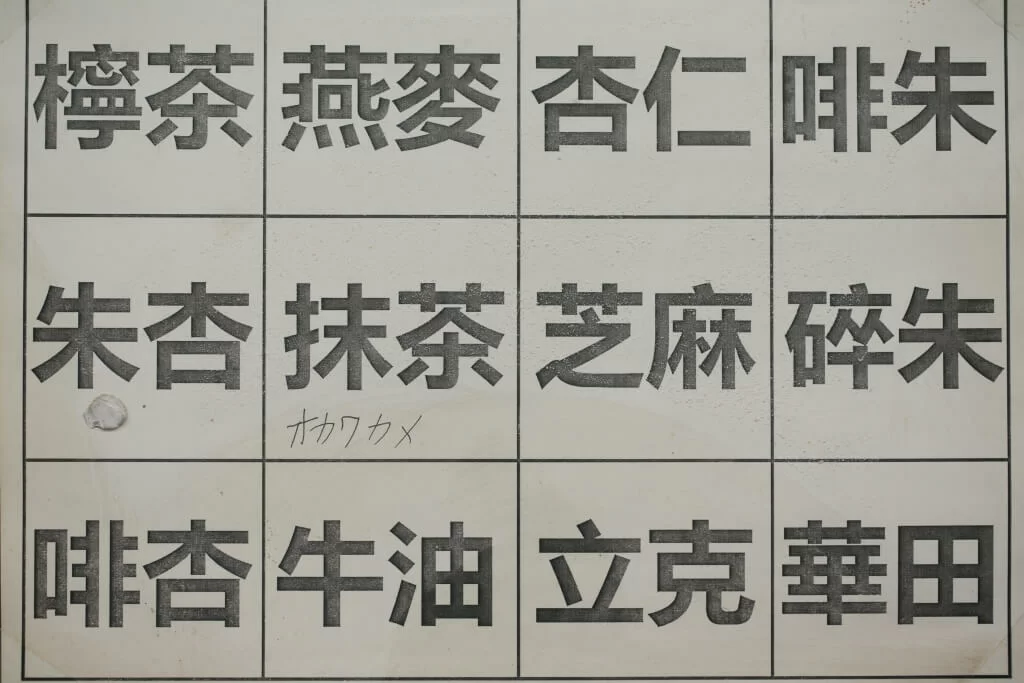 檸茶 燕麥 杏仁 啡朱
朱杏 抹茶 芝麻 碎朱
オカワカメ
啡杏 牛油 立克 華田